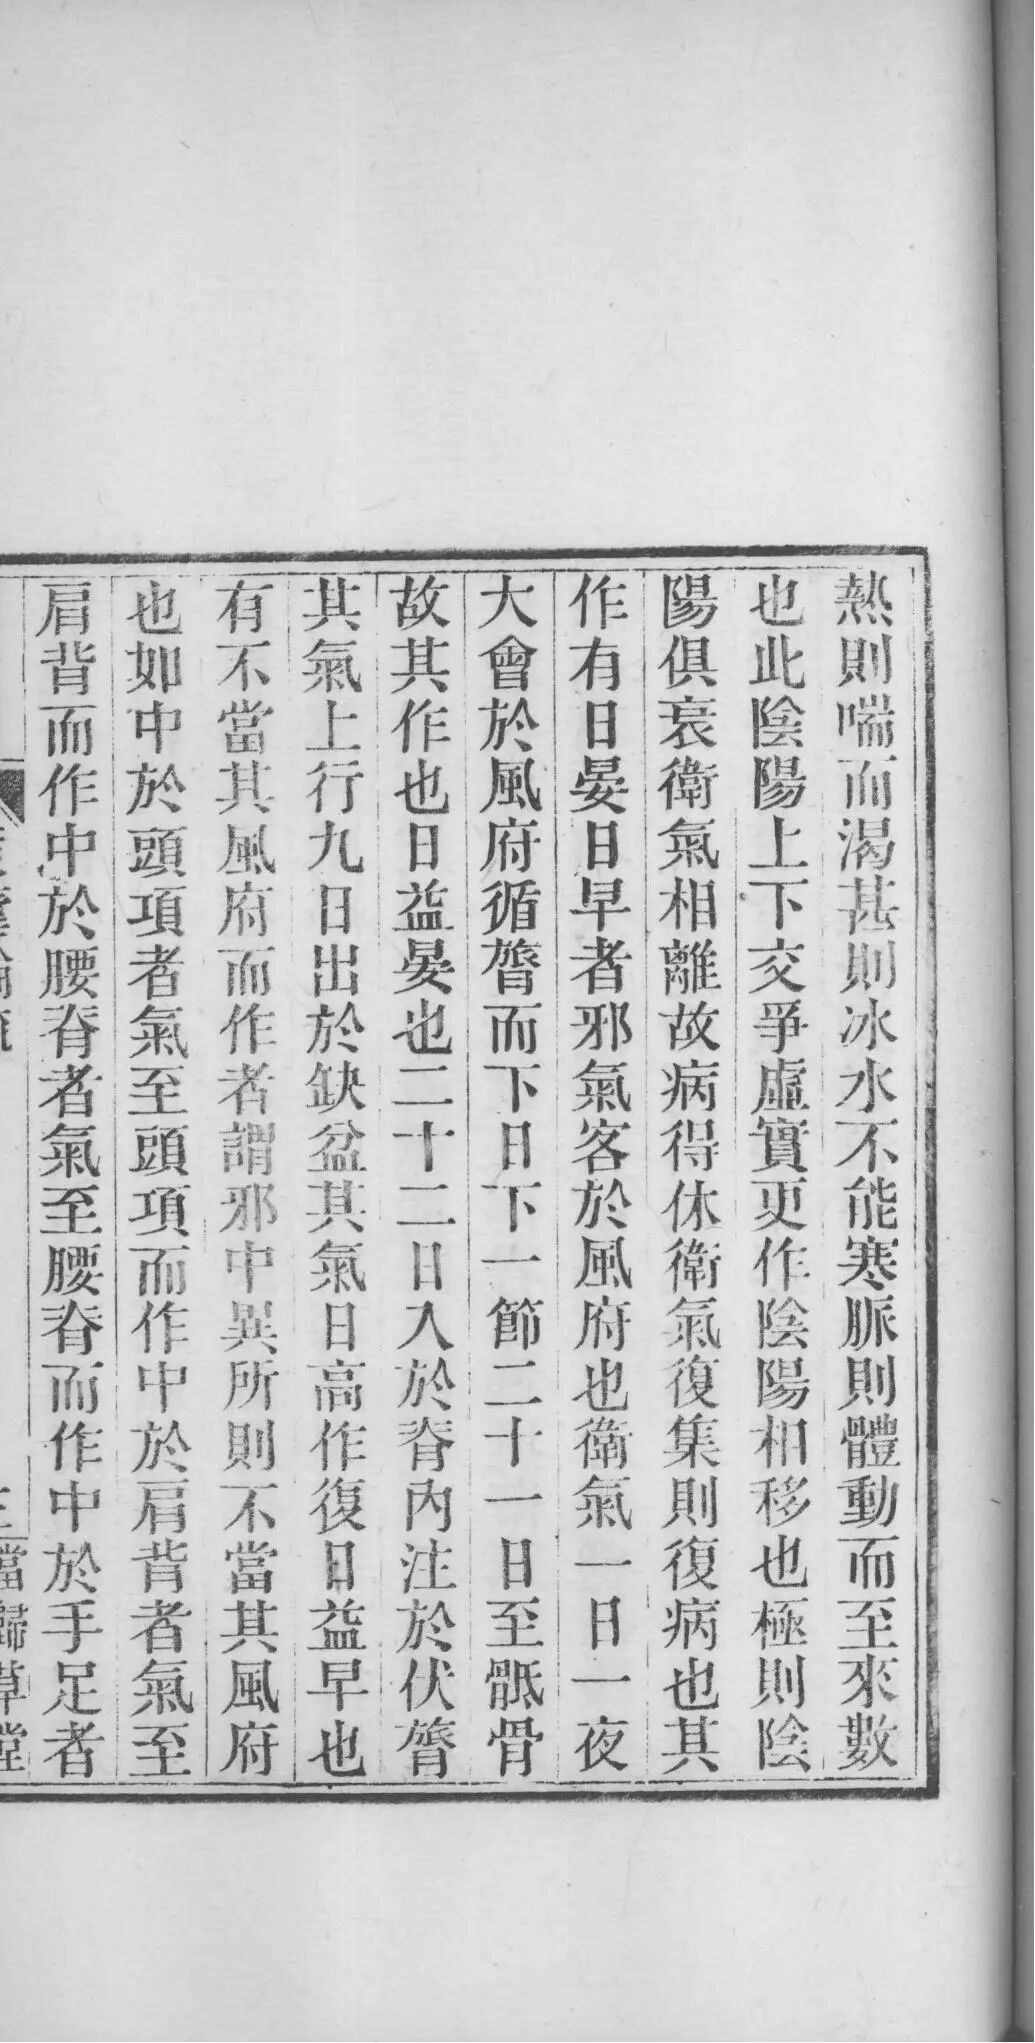 熱則喘而渴甚則冰水不能寒脈則體動而至來數
也此陰陽上下交爭虛實更作陰陽相移也極則陰
陽俱衰衛氣相離故病得休衛氣復集則復病也其
作有日晏日早者邪氣客於風府也衛氣一日一夜
大會於風府循膂而下日下一節二十一日至骶骨
故其作也日益晏也二十二日入於脊內注於伏膂
其氣上行九日出於缺盆其氣日高作復日益早也
有不當其風府而作者謂邪中異所則不當其風府
也如中於頭項者氣至頭項而作中於肩背者氣至
肩背而作中於腰脊者氣至腰脊而作中於手足者
當歸草堂